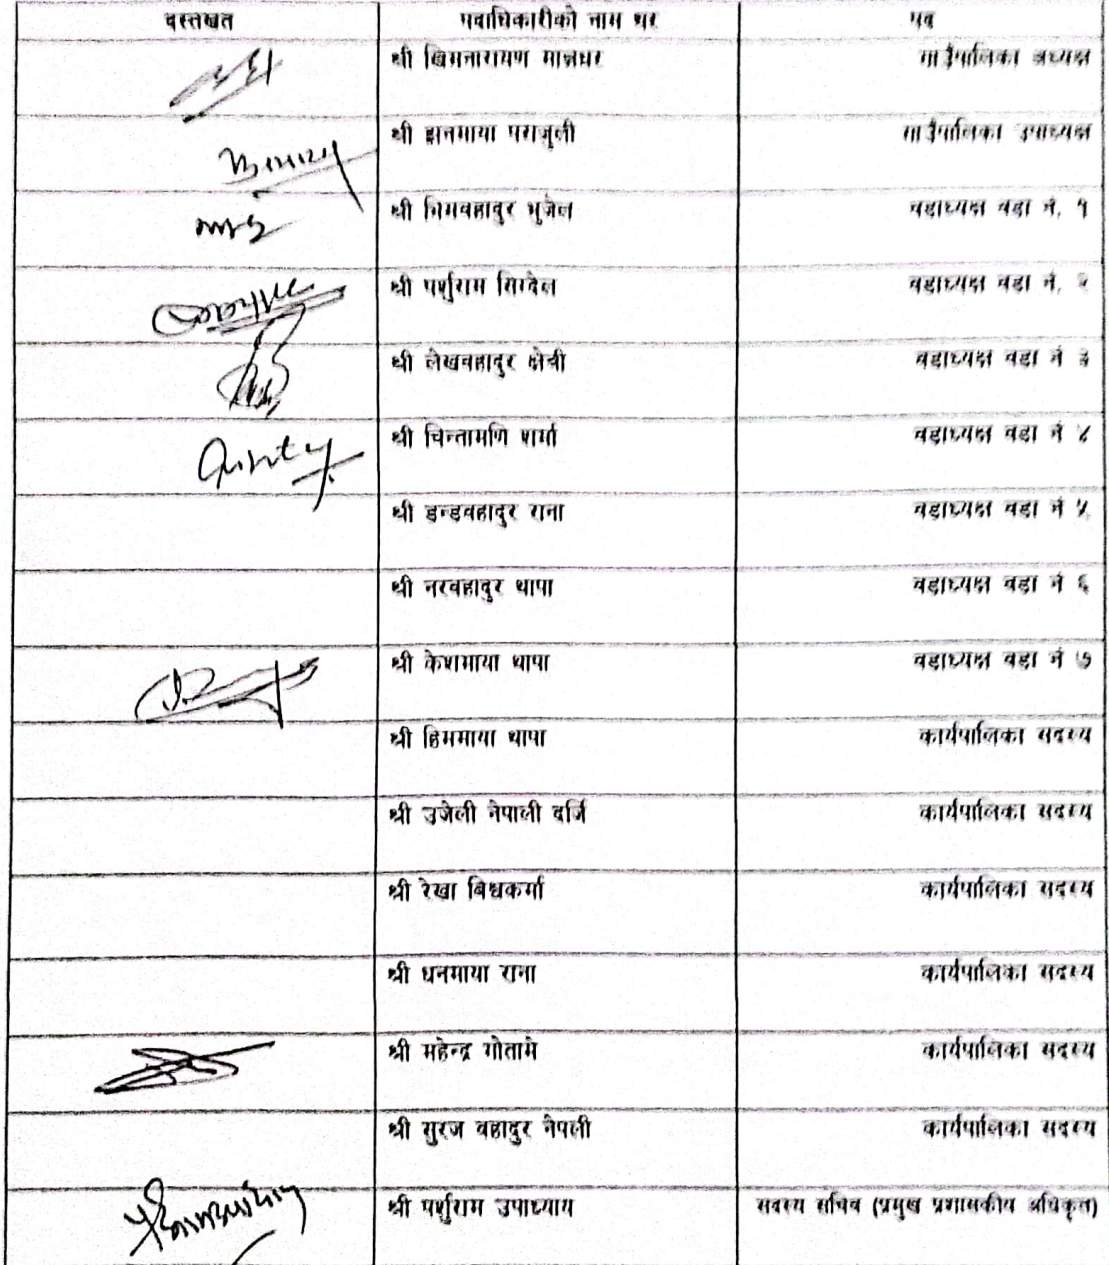 दस्तखत पदाधिकारीको नाम थर पद
श्री खिमनारायण मान्नधर गाउँपालिका अध्यक्ष
श्री झनमाया पराजुली गाउँपालिका उपाध्यक्ष
श्री भिमबहादुर भुजेल वडाध्यक्ष वडा नं. १
श्री पर्शुराम सिग्देल वडाध्यक्ष वडा नं. २
श्री लेखबहादुर क्षेत्री वडाध्यक्ष वडा नं ३
श्री चिन्तामणि शर्मा वडाध्यक्ष वडा नं ४
श्री डन्डवहादुर राना वडाध्यक्ष वडा नं ५
श्री नरवहादुर थापा वडाध्यक्ष वडा नं ६
श्री केशमाया थापा वडाध्यक्ष वडा नं ७
श्री हिममाया थापा कार्यपालिका सदस्य
श्री उजेली नेपाली दर्जि कार्यपालिका सदस्य
श्री रेखा बिश्वकर्मा कार्यपालिका सदस्य
श्री धनमाया राना कार्यपालिका सदस्य
श्री महेन्द्र गोतामे कार्यपालिका सदस्य
श्री सुरज वहादुर नेपली कार्यपालिका सदस्य
श्री पर्शुराम उपाध्याय सदस्य सचिव (प्रमुख प्रशासकीय अधिकृत)